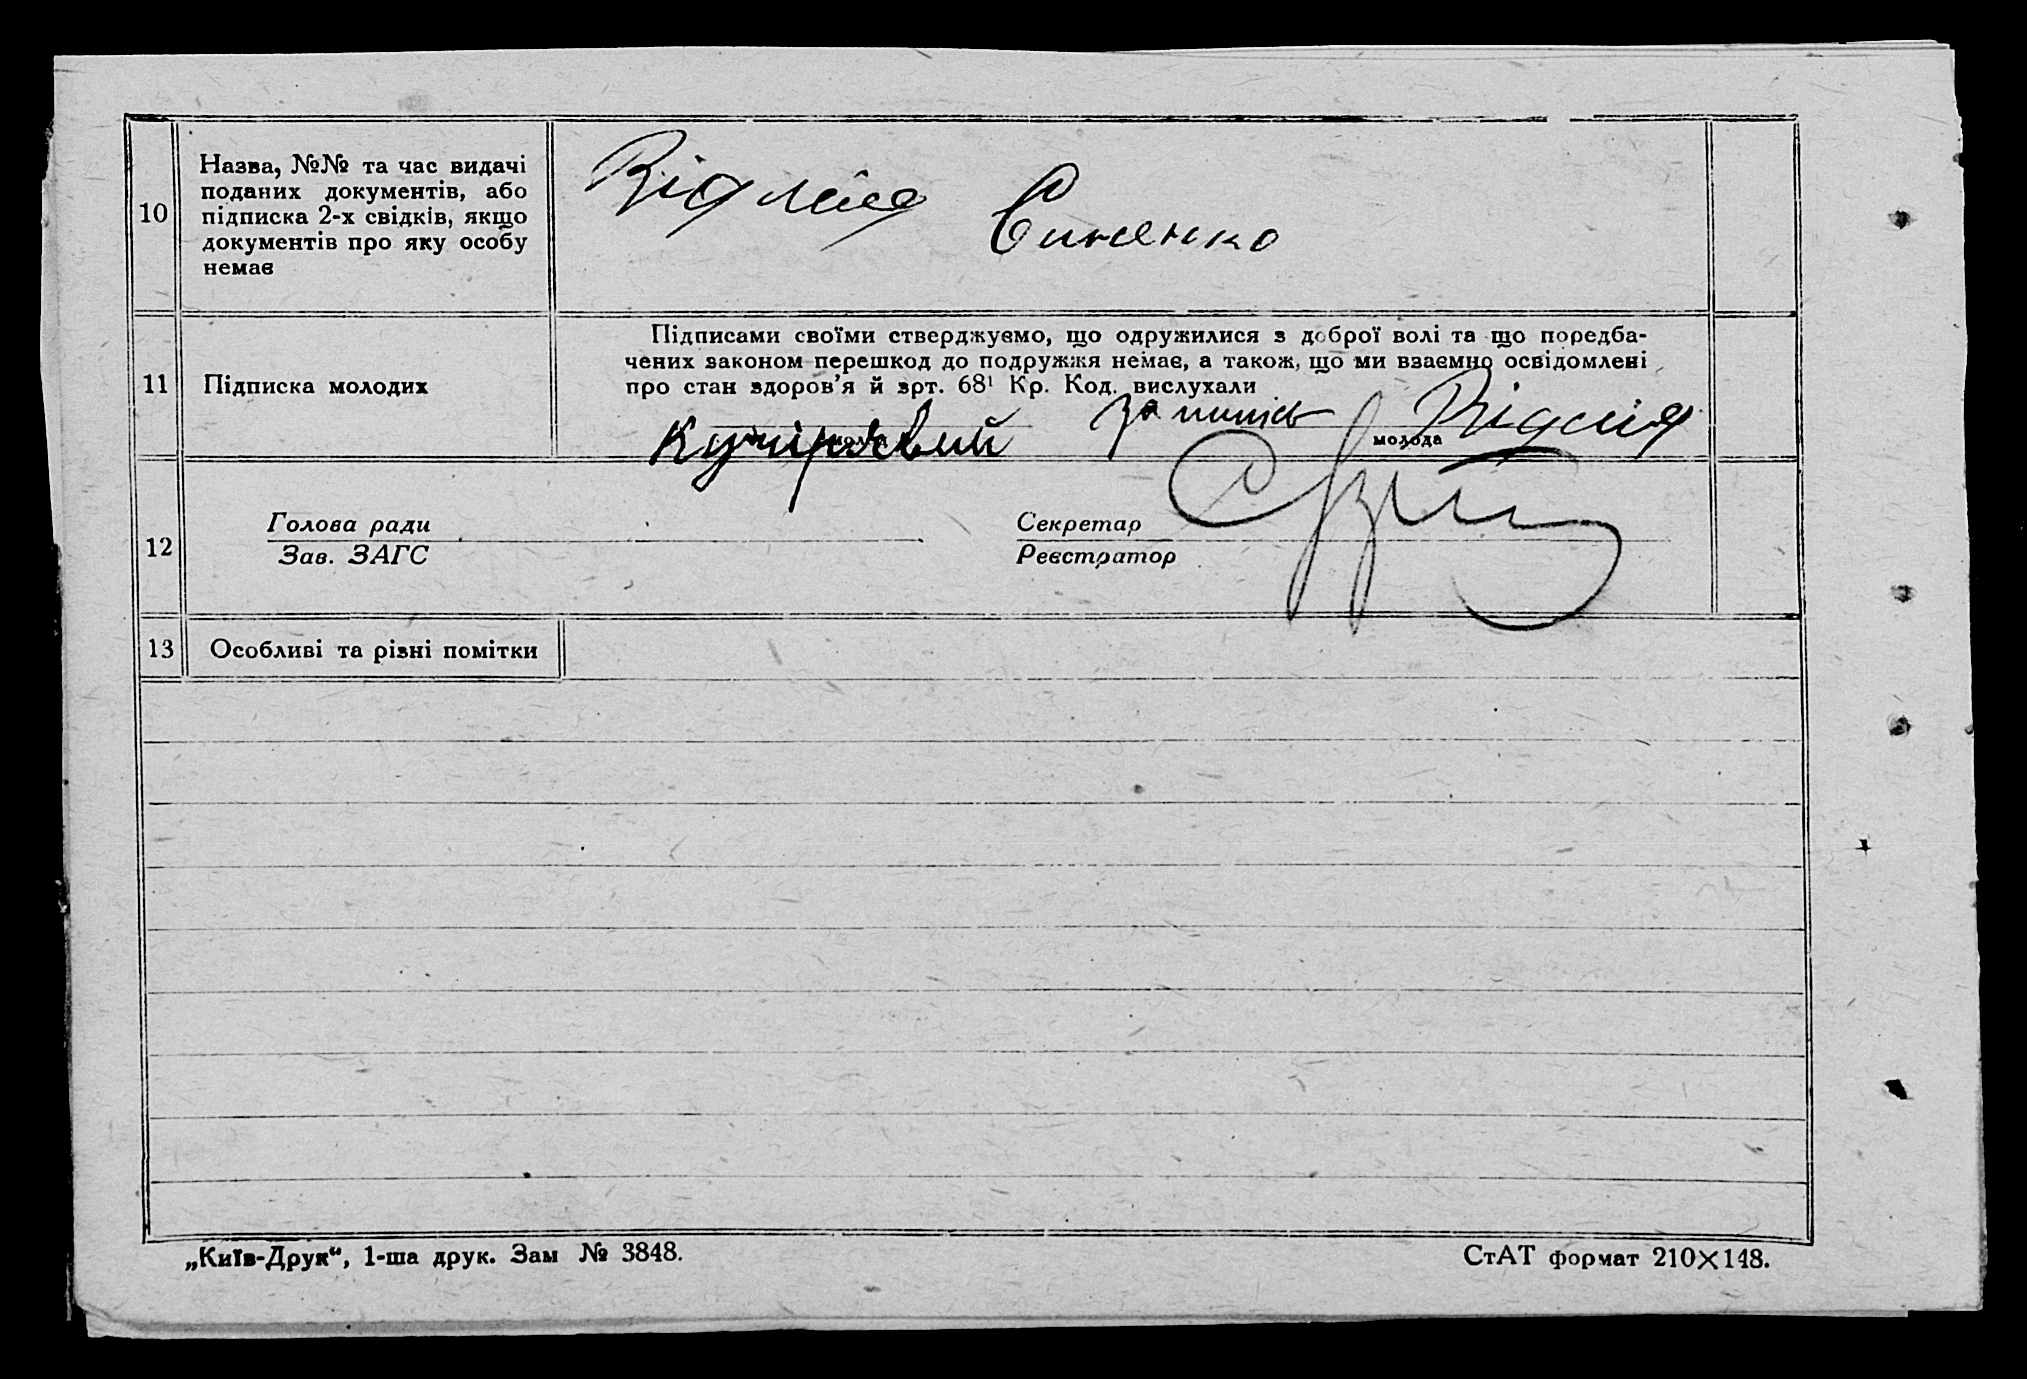 10
Назва, №№ та час видачі
поданих документів, або
підписка 2-х свідків, якщо
документів про яку особу
немає
Синенко
11
Підписка молодих
Підписами своїми стверджуємо, що одружилися з доброї волі та що поредба-
чених законом перешкод до подружжя немає, а також, що ми взаємно освідомлені
про стан здоров'я й зрт. 68¹ Кр. Код. вислухали
молода
12
Голова ради
Зав. ЗАГС
Секретар
Реєстратор
13
Особливі та різні помітки
„Київ-Друк“, 1-ша друк. Зам № 3848.
СтАТ формат 210×148.